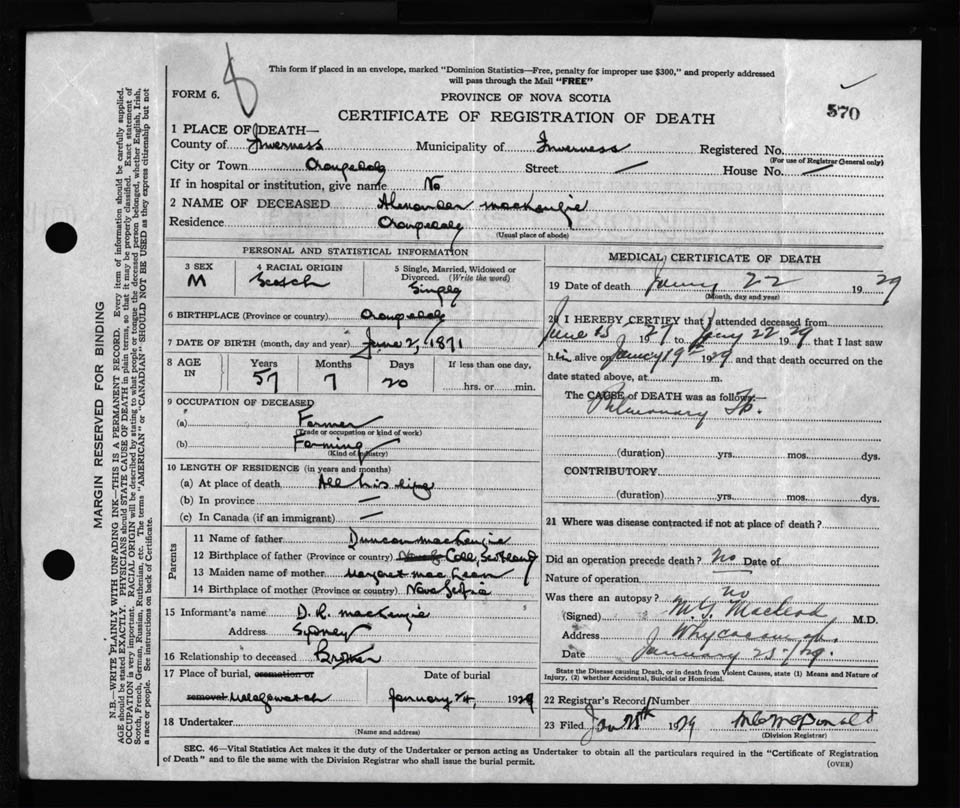 This form if placed in an envelope, marked "Dominion Statistics—Free, penalty for improper use $300," and properly addressed
will pass through the Mail "FREE"
FORM 6.
PROVINCE OF NOVA SCOTIA
570
CERTIFICATE OF REGISTRATION OF DEATH
1 PLACE OF DEATH—
County of Inverness Municipality of Inverness Registered No.
(For use of Registrar General only)
City or Town Orangedale Street — House No. —
If in hospital or institution, give name No
2 NAME OF DECEASED Alexander MacKenzie
Residence Orangedale
(Usual place of abode)
PERSONAL AND STATISTICAL INFORMATION
3 SEX 4 RACIAL ORIGIN 5 Single, Married, Widowed or
Divorced. (Write the word)
M Scotch Single
6 BIRTHPLACE (Province or country) Orangedale
7 DATE OF BIRTH (month, day and year) June 2, 1871
8 AGE IN Years Months Days If less than one day,
57 7 20 hrs. or min.
9 OCCUPATION OF DECEASED
(a) Farmer
(Trade or occupation or kind of work)
(b) Farming
(Kind of industry)
10 LENGTH OF RESIDENCE (in years and months)
(a) At place of death All his life
(b) In province —
(c) In Canada (if an immigrant) —
Parents
11 Name of father Duncan MacKenzie
12 Birthplace of father (Province or country) Coll, Scotland
13 Maiden name of mother Margaret MacLean
14 Birthplace of mother (Province or country) Nova Scotia
15 Informant's name D. R. MacKenzie
Address Sydney
16 Relationship to deceased Brother
17 Place of burial, cremation or Date of burial
removal Malagawatch January 24, 1929
18 Undertaker
(Name and address)
MEDICAL CERTIFICATE OF DEATH
19 Date of death January 22 1929
(Month, day and year)
20 I HEREBY CERTIFY that I attended deceased from
June 15 1927 to Jany 22 1929 that I last saw
him alive on January 19th 1929 and that death occurred on the
date stated above, at m.
The CAUSE of DEATH was as follows:—
Pulmonary Tb.
(duration) yrs. mos. dys.
CONTRIBUTORY
(duration) yrs. mos. dys.
21 Where was disease contracted if not at place of death?
Did an operation precede death? No Date of
Nature of operation
Was there an autopsy? no
(Signed) MacLeod M.D.
Address Whycocomagh
Date January 23/29
State the Disease causing Death, or in death from Violent Causes, state (1) Means and Nature of
Injury, (2) whether Accidental, Suicidal or Homicidal.
22 Registrar's Record Number
23 Filed Jan 1929 McDonald
(Division Registrar)
SEC. 46—Vital Statistics Act makes it the duty of the Undertaker or person acting as Undertaker to obtain all the particulars required in the "Certificate of Registration
of Death" and to file the same with the Division Registrar who shall issue the burial permit.
(OVER)
MARGIN RESERVED FOR BINDING
N.B.—WRITE PLAINLY WITH UNFADING INK—THIS IS A PERMANENT RECORD. Every item of information should be carefully supplied.
AGE should be stated EXACTLY. PHYSICIANS should STATE CAUSE OF DEATH in plain terms, so that it may be properly classified. Exact statement of
OCCUPATION is very important. RACIAL ORIGIN will be described by stating to what people or tongue the deceased person belonged, whether English, Irish,
Scotch, French, German, Russian, Ruthenian, etc. The terms "AMERICAN" or "CANADIAN" SHOULD NOT BE USED as they express citizenship but not
a race or people. See instructions on back of Certificate.